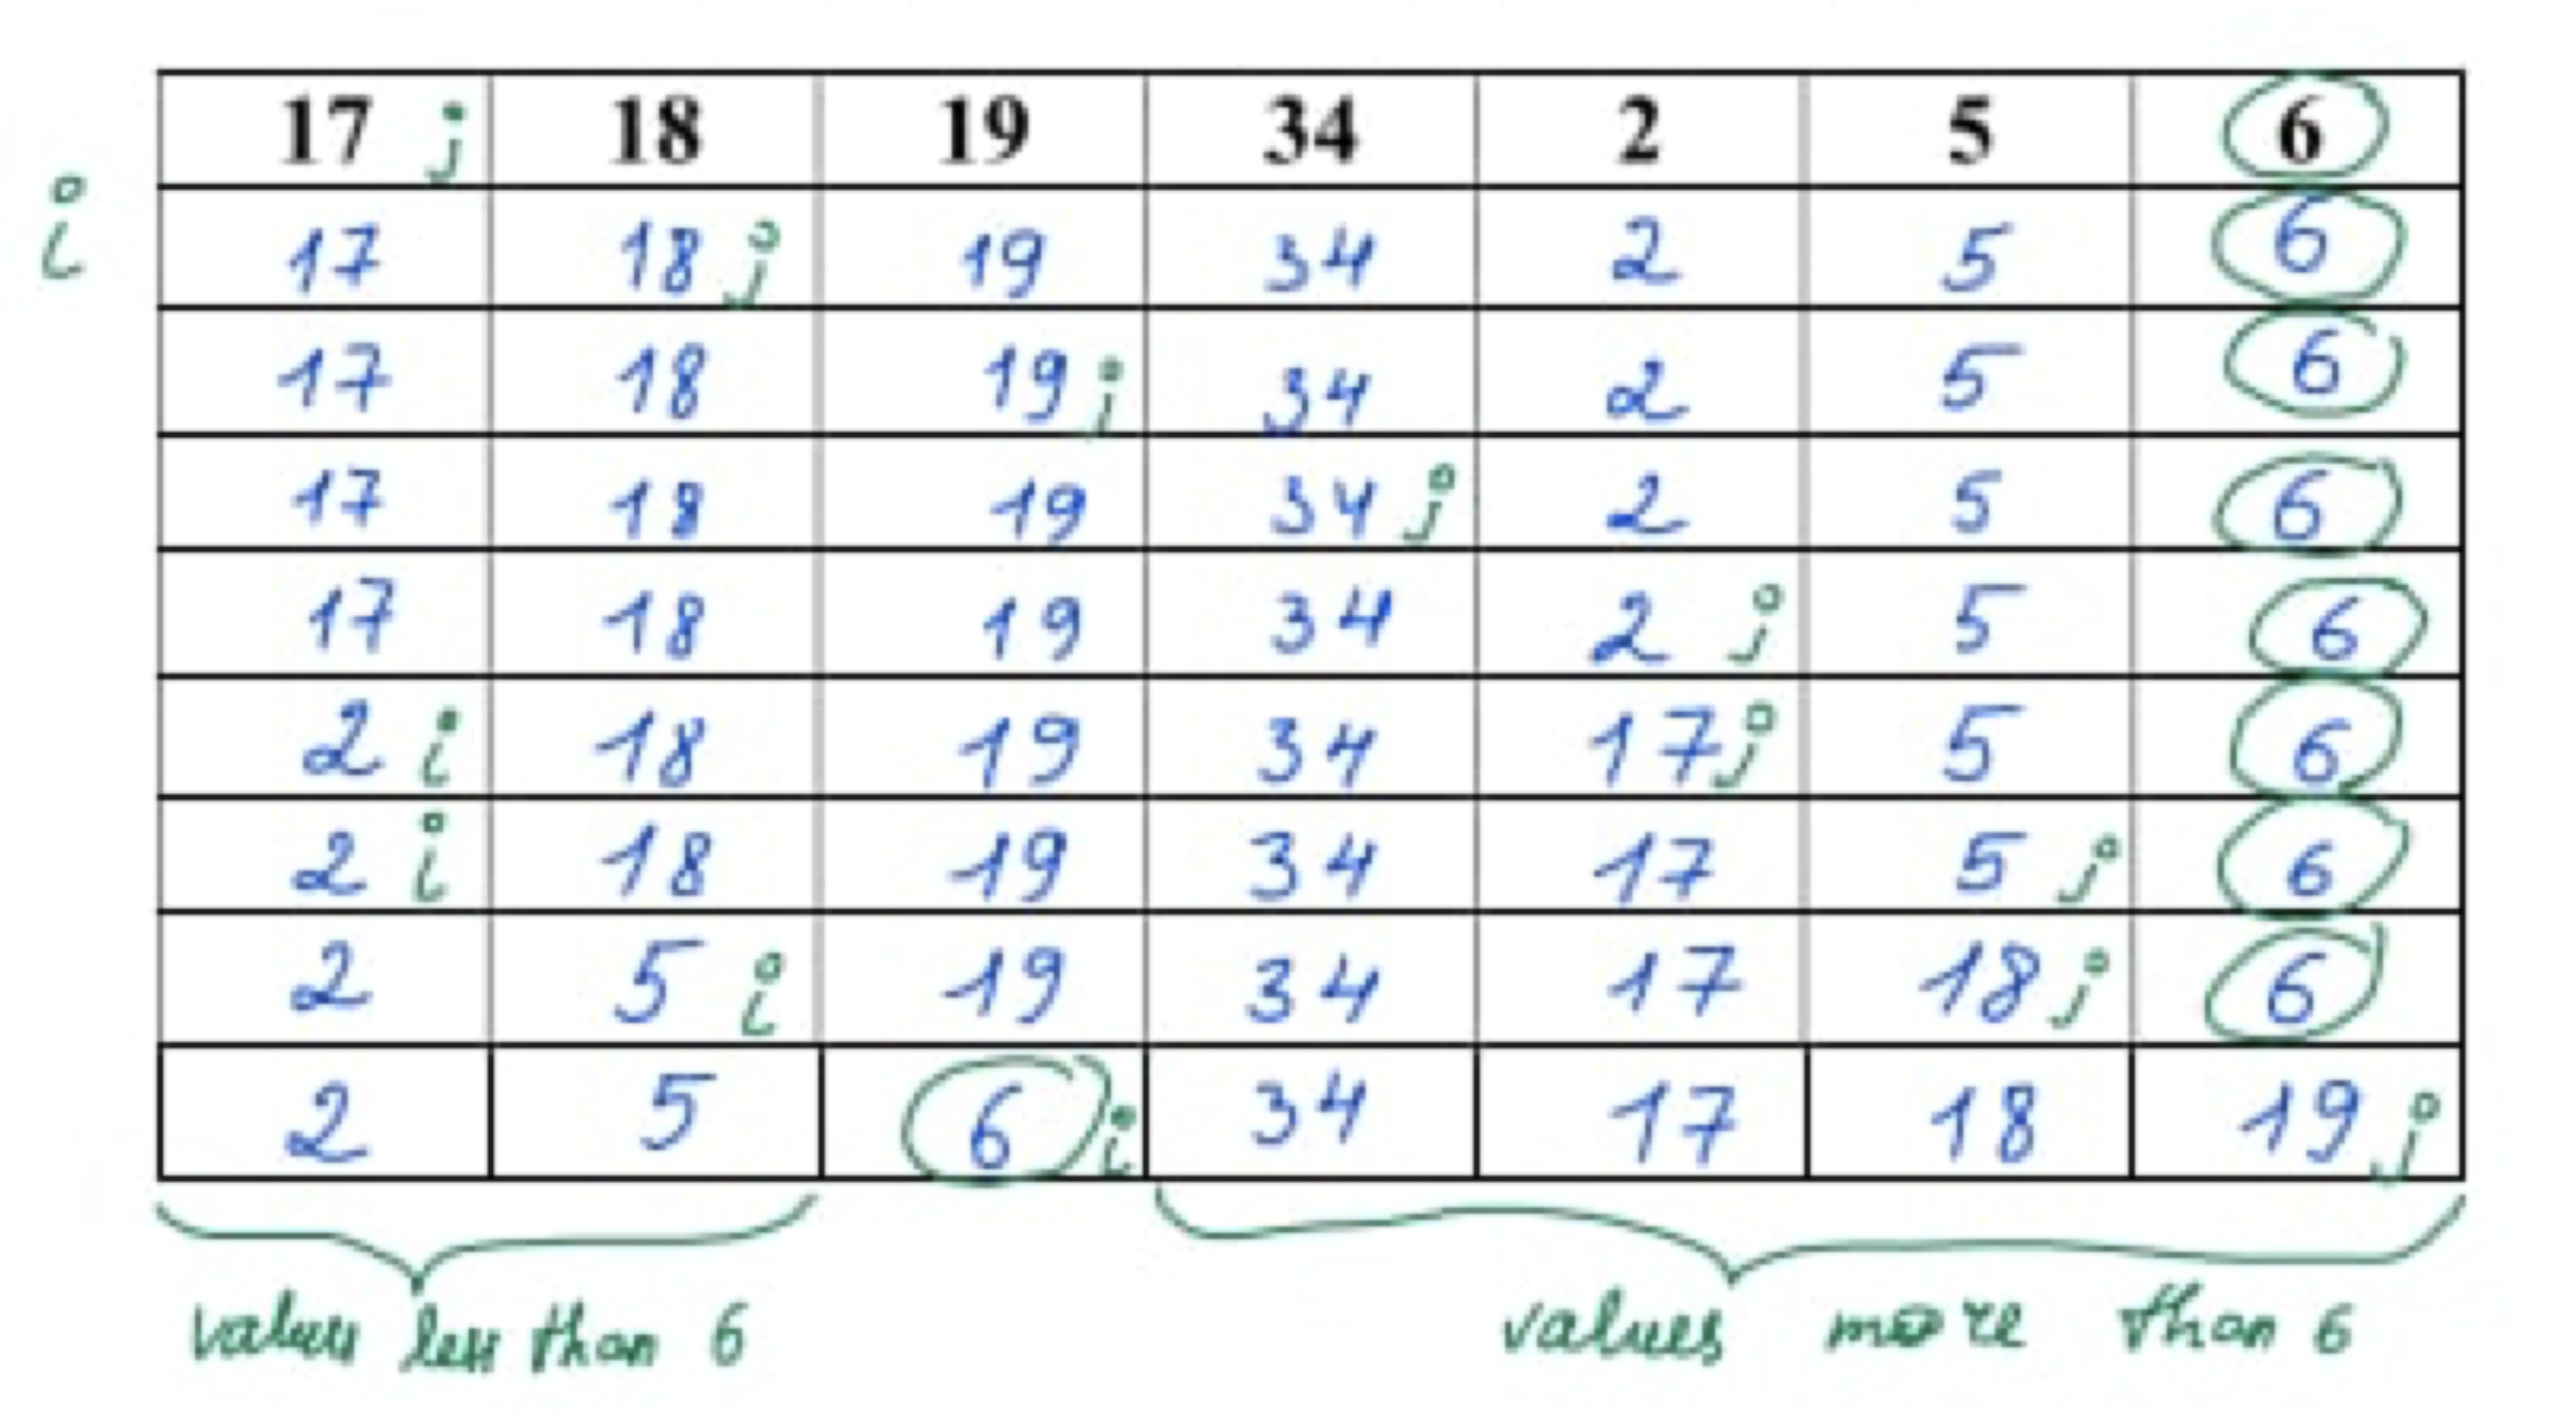 17 j 18 19 34 2 5 6
i
17 18 j 19 34 2 5 6
17 18 19 j 34 2 5 6
17 18 19 34 j 2 5 6
17 18 19 34 2 j 5 6
2 i 18 19 34 17 j 5 6
2 i 18 19 34 17 5 j 6
2 5 i 19 34 17 18 j 6
2 5 6 i 34 17 18 19 j
values less than 6 values more than 6